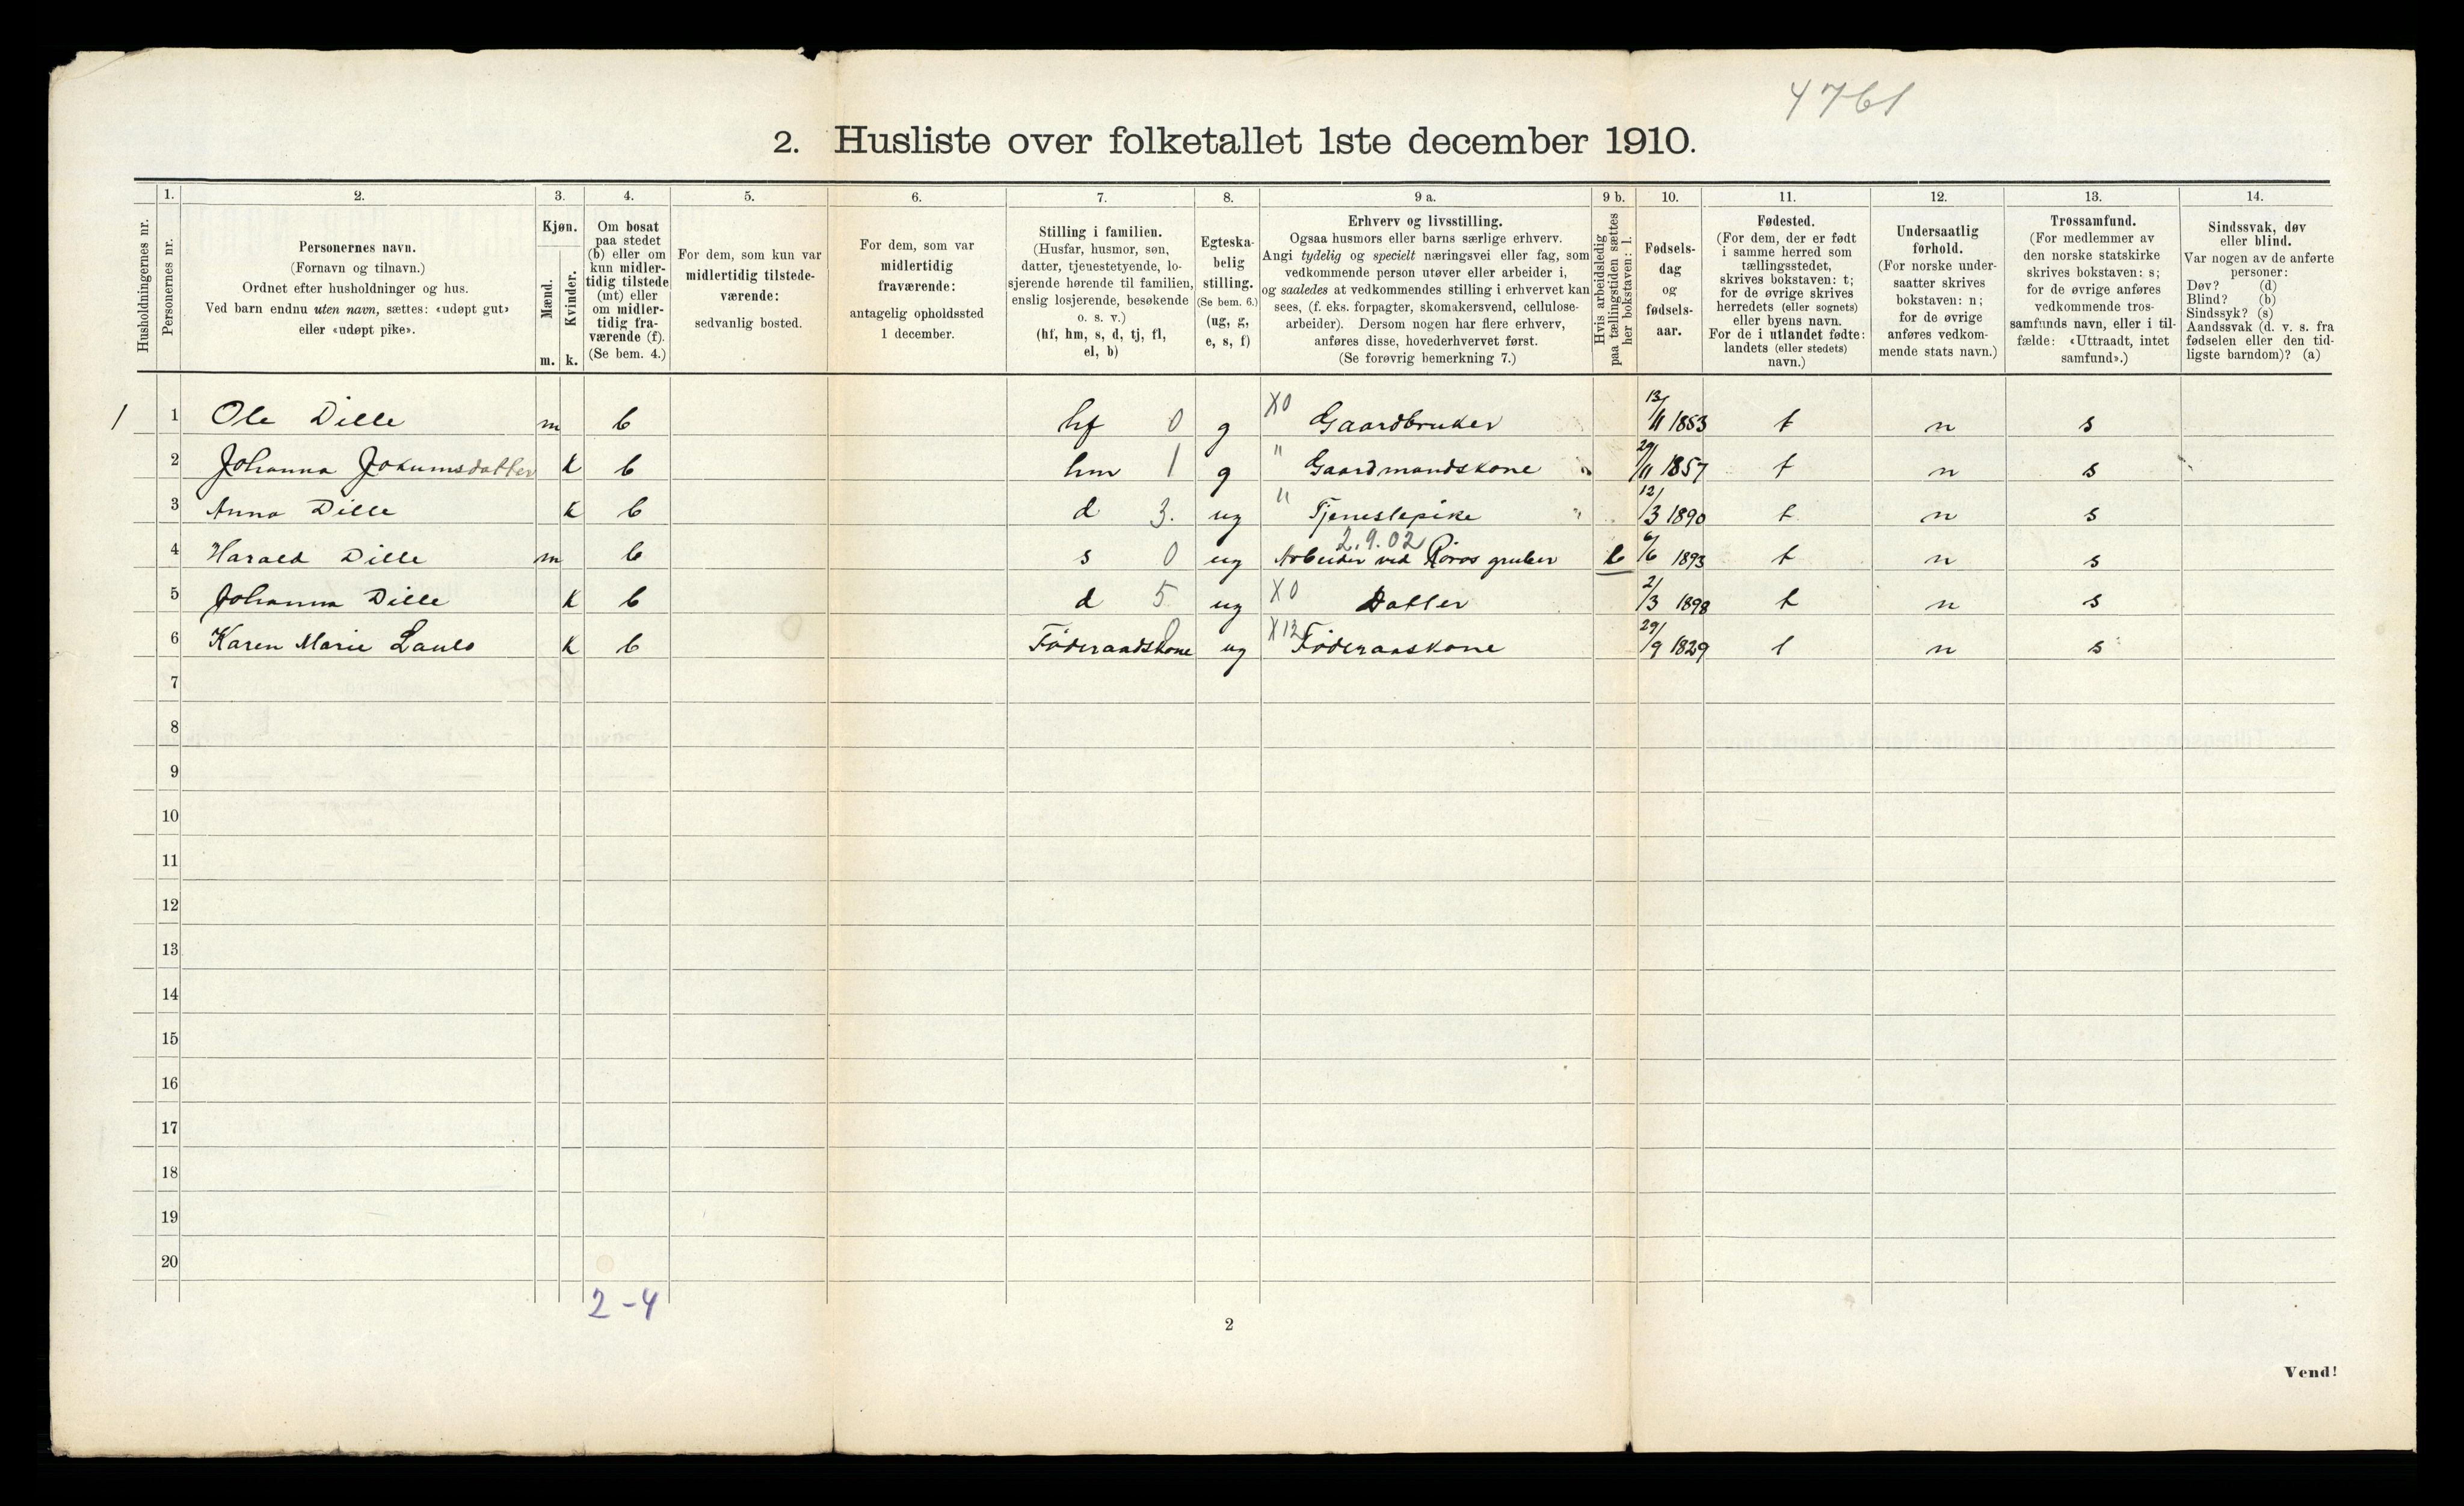 4761
2. Husliste over folketallet 1ste december 1910.
Husholdningernes nr.
1.
Personernes nr.
2.
Personernes navn.
(Fornavn og tilnavn.)
Ordnet efter husholdninger og hus.
Ved barn endnu uten navn, sættes: «udøpt gut»
eller «udøpt pike».
3.
Kjøn.
Mænd.
Kvinder.
m. k.
4.
Om bosat
paa stedet
(b) eller om
kun midler-
tidig tilstede
(mt) eller
om midler-
tidig fra-
værende (f).
(Se bem. 4.)
5.
For dem, som kun var
midlertidig tilstede-
værende:
sedvanlig bosted.
6.
For dem, som var
midlertidig
fraværende:
antagelig opholdssted
1 december.
7.
Stilling i familien.
(Husfar, husmor, søn,
datter, tjenestetyende, lo-
sjerende hørende til familien,
enslig losjerende, besøkende
o. s. v.)
(hf, hm, s, d, tj, fl,
el, b)
8.
Egteska-
belig
stilling.
(Se bem. 6.)
(ug, g,
e, s, f)
9 a.
Erhverv og livsstilling.
Ogsaa husmors eller barns særlige erhverv.
Angi tydelig og specielt næringsvei eller fag, som
vedkommende person utøver eller arbeider i,
og saaledes at vedkommendes stilling i erhvervet kan
sees, (f. eks. forpagter, skomakersvend, cellulose-
arbeider). Dersom nogen har flere erhverv,
anføres disse, hovederhvervet først.
(Se forøvrig bemerkning 7.)
9 b.
Hvis arbeidsledig
paa tællingstiden sættes
her bokstaven: l.
10.
Fødsels-
dag
og
fødsels-
aar.
11.
Fødested.
(For dem, der er født
i samme herred som
tællingsstedet,
skrives bokstaven: t;
for de øvrige skrives
herredets (eller sognets)
eller byens navn.
For de i utlandet fødte:
landets (eller stedets)
navn.)
12.
Undersaatlig
forhold.
(For norske under-
saatter skrives
bokstaven: n;
for de øvrige
anføres vedkom-
mende stats navn.)
13.
Trossamfund.
(For medlemmer av
den norske statskirke
skrives bokstaven: s;
for de øvrige anføres
vedkommende tros-
samfunds navn, eller i til-
fælde: «Uttraadt, intet
samfund».)
14.
Sindssvak, døv
eller blind.
Var nogen av de anførte
personer:
Døv? (d)
Blind? (b)
Sindssyk? (s)
Aandssvak (d. v. s. fra
fødselen eller den tid-
ligste barndom)? (a)
1 1 Ole Dille m b hf 0 g X0 Gaardbruker 13/11 1853 t n s
2 Johanna Jokumsdatter k b hm 1 g " Gaardmandskone 29/11 1857 t n s
3 Anna Dille k b d 3. ug " Tjenestepike 12/3 1890 t n s
2.9.02
4 Harald Dille m b s 0 ug Arbeider ved Røros gruber l 6/6 1893 t n s
5 Johanna Dille k b d 5 ug X0 Datter 2/3 1898 t n s
6 Karen Marie k b Föderaadskone ug X12 Föderaaskone 29/9 1829 t n s
7
8
9
10
11
12
13
14
15
16
17
18
19
20
2-4
2
Vend!